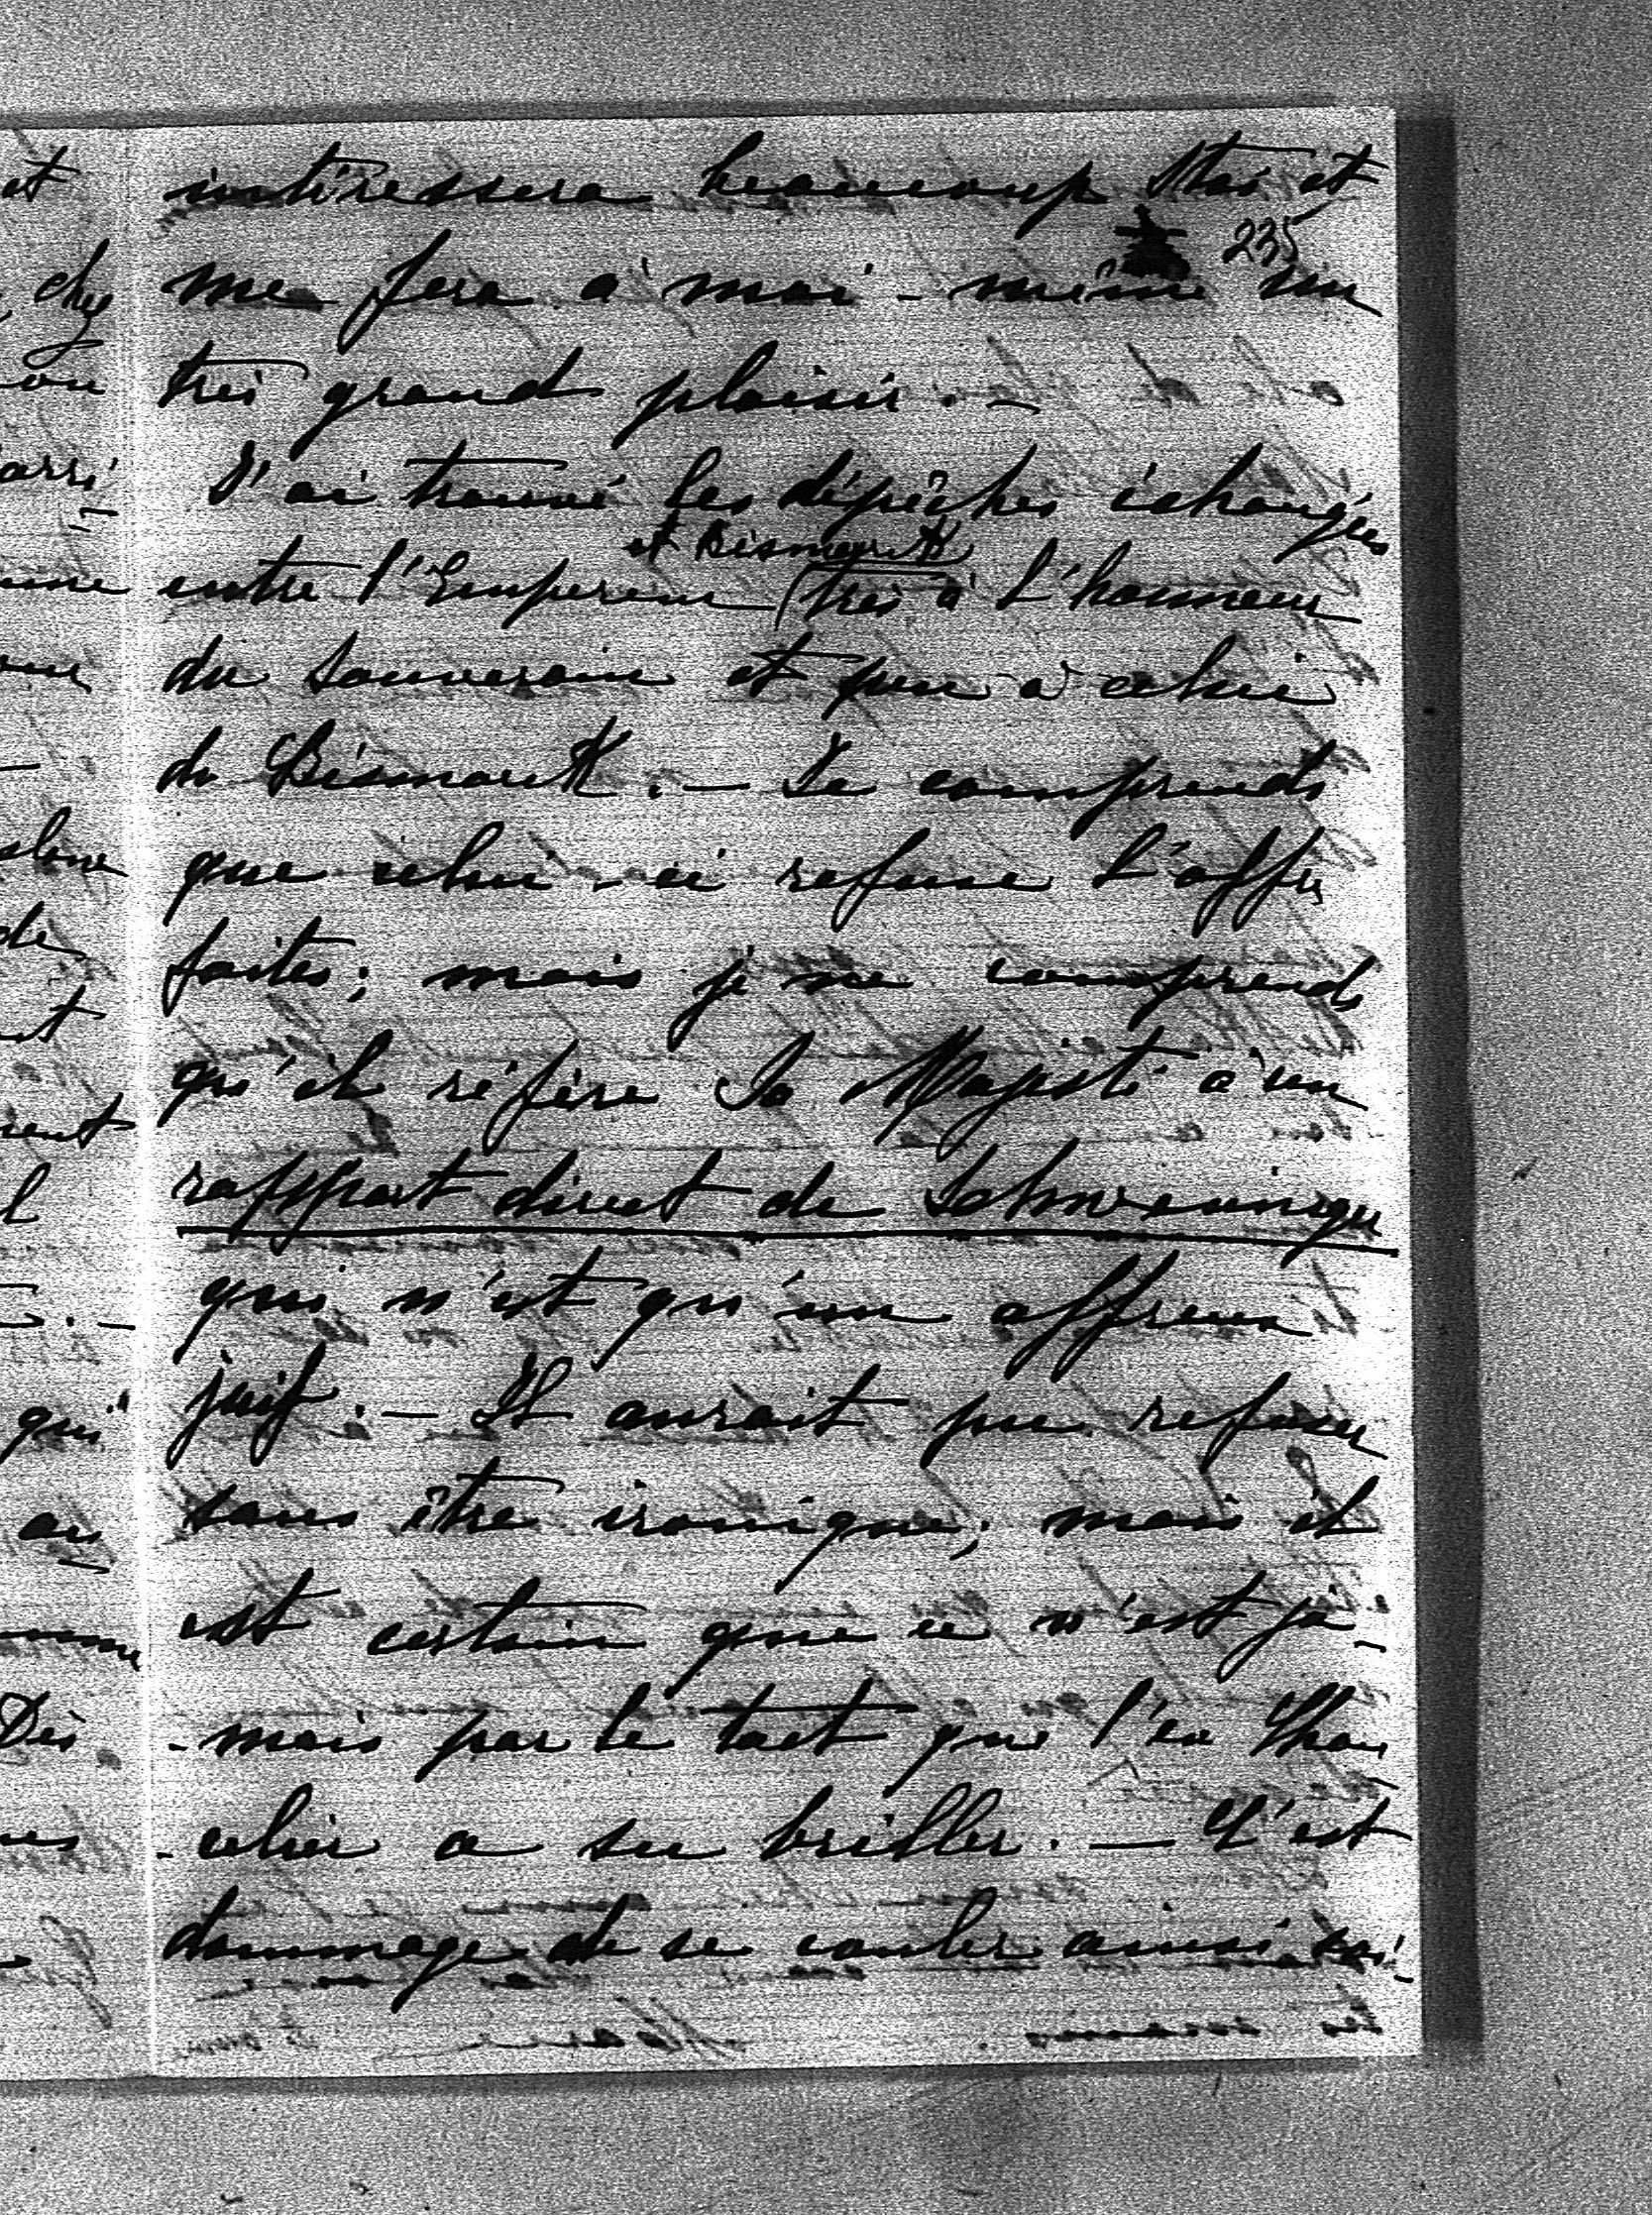 intéressera beaucoup et
235
me fera à moi-même un
très grand plaisir. –
J'ai trouvé les dépêches échangées
et Bismarck
entre l'Empereur (très à l'honneur
du Souverain et peu à celui
de Bismarck. – Je comprends
que celui-ci refuse l'offre
faite; mais je ne comprends
qu'il réfère Sa Majesté à un
rapport direct de Schweninger
qui n'est qu'un affreux
juif. – Il aurait pu refuser
sans être ironique; mais il
est certain que ce n'est ja-
-mais par le tact que l'ex Chan-
-celier a su briller. – C'est
dommage de se couler ainsi soi-
et
chez
ou
arri-
une
de
nt
rent
l
qui
au
Dès